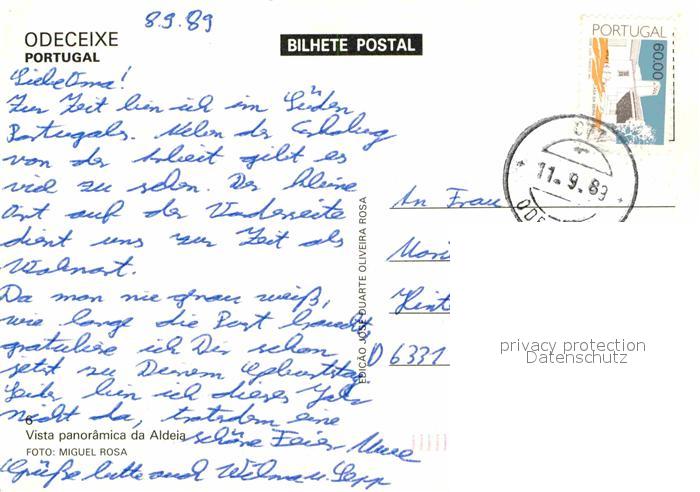 8.9.89
ODECEIXE
PORTUGAL
BILHETE POSTAL
PORTUGAL
60,00
11.-9.89
Liebe Oma!
Zur Zeit bin ich im Süden
Portugals. Neben der Erholung
von der Arbeit gibt es
viel zu sehen. Der kleine
Ort auf der Vorderseite
dient uns zur Zeit als
Wohnort.
Da man nie genau weiß,
wie lange die Post braucht
gratuliere ich Dir schon
jetzt zu Deinem Geburtstag.
Leider bin ich dieses Jahr
nicht da, trotzdem eine
schöne Feier
Grüße bitte auch Wilma u. Sepp
An Frau
D 6331
EDIÇÃO JOSÉ DUARTE OLIVEIRA ROSA
6
Vista panorâmica da Aldeia
FOTO: MIGUEL ROSA
privacy protection
Datenschutz